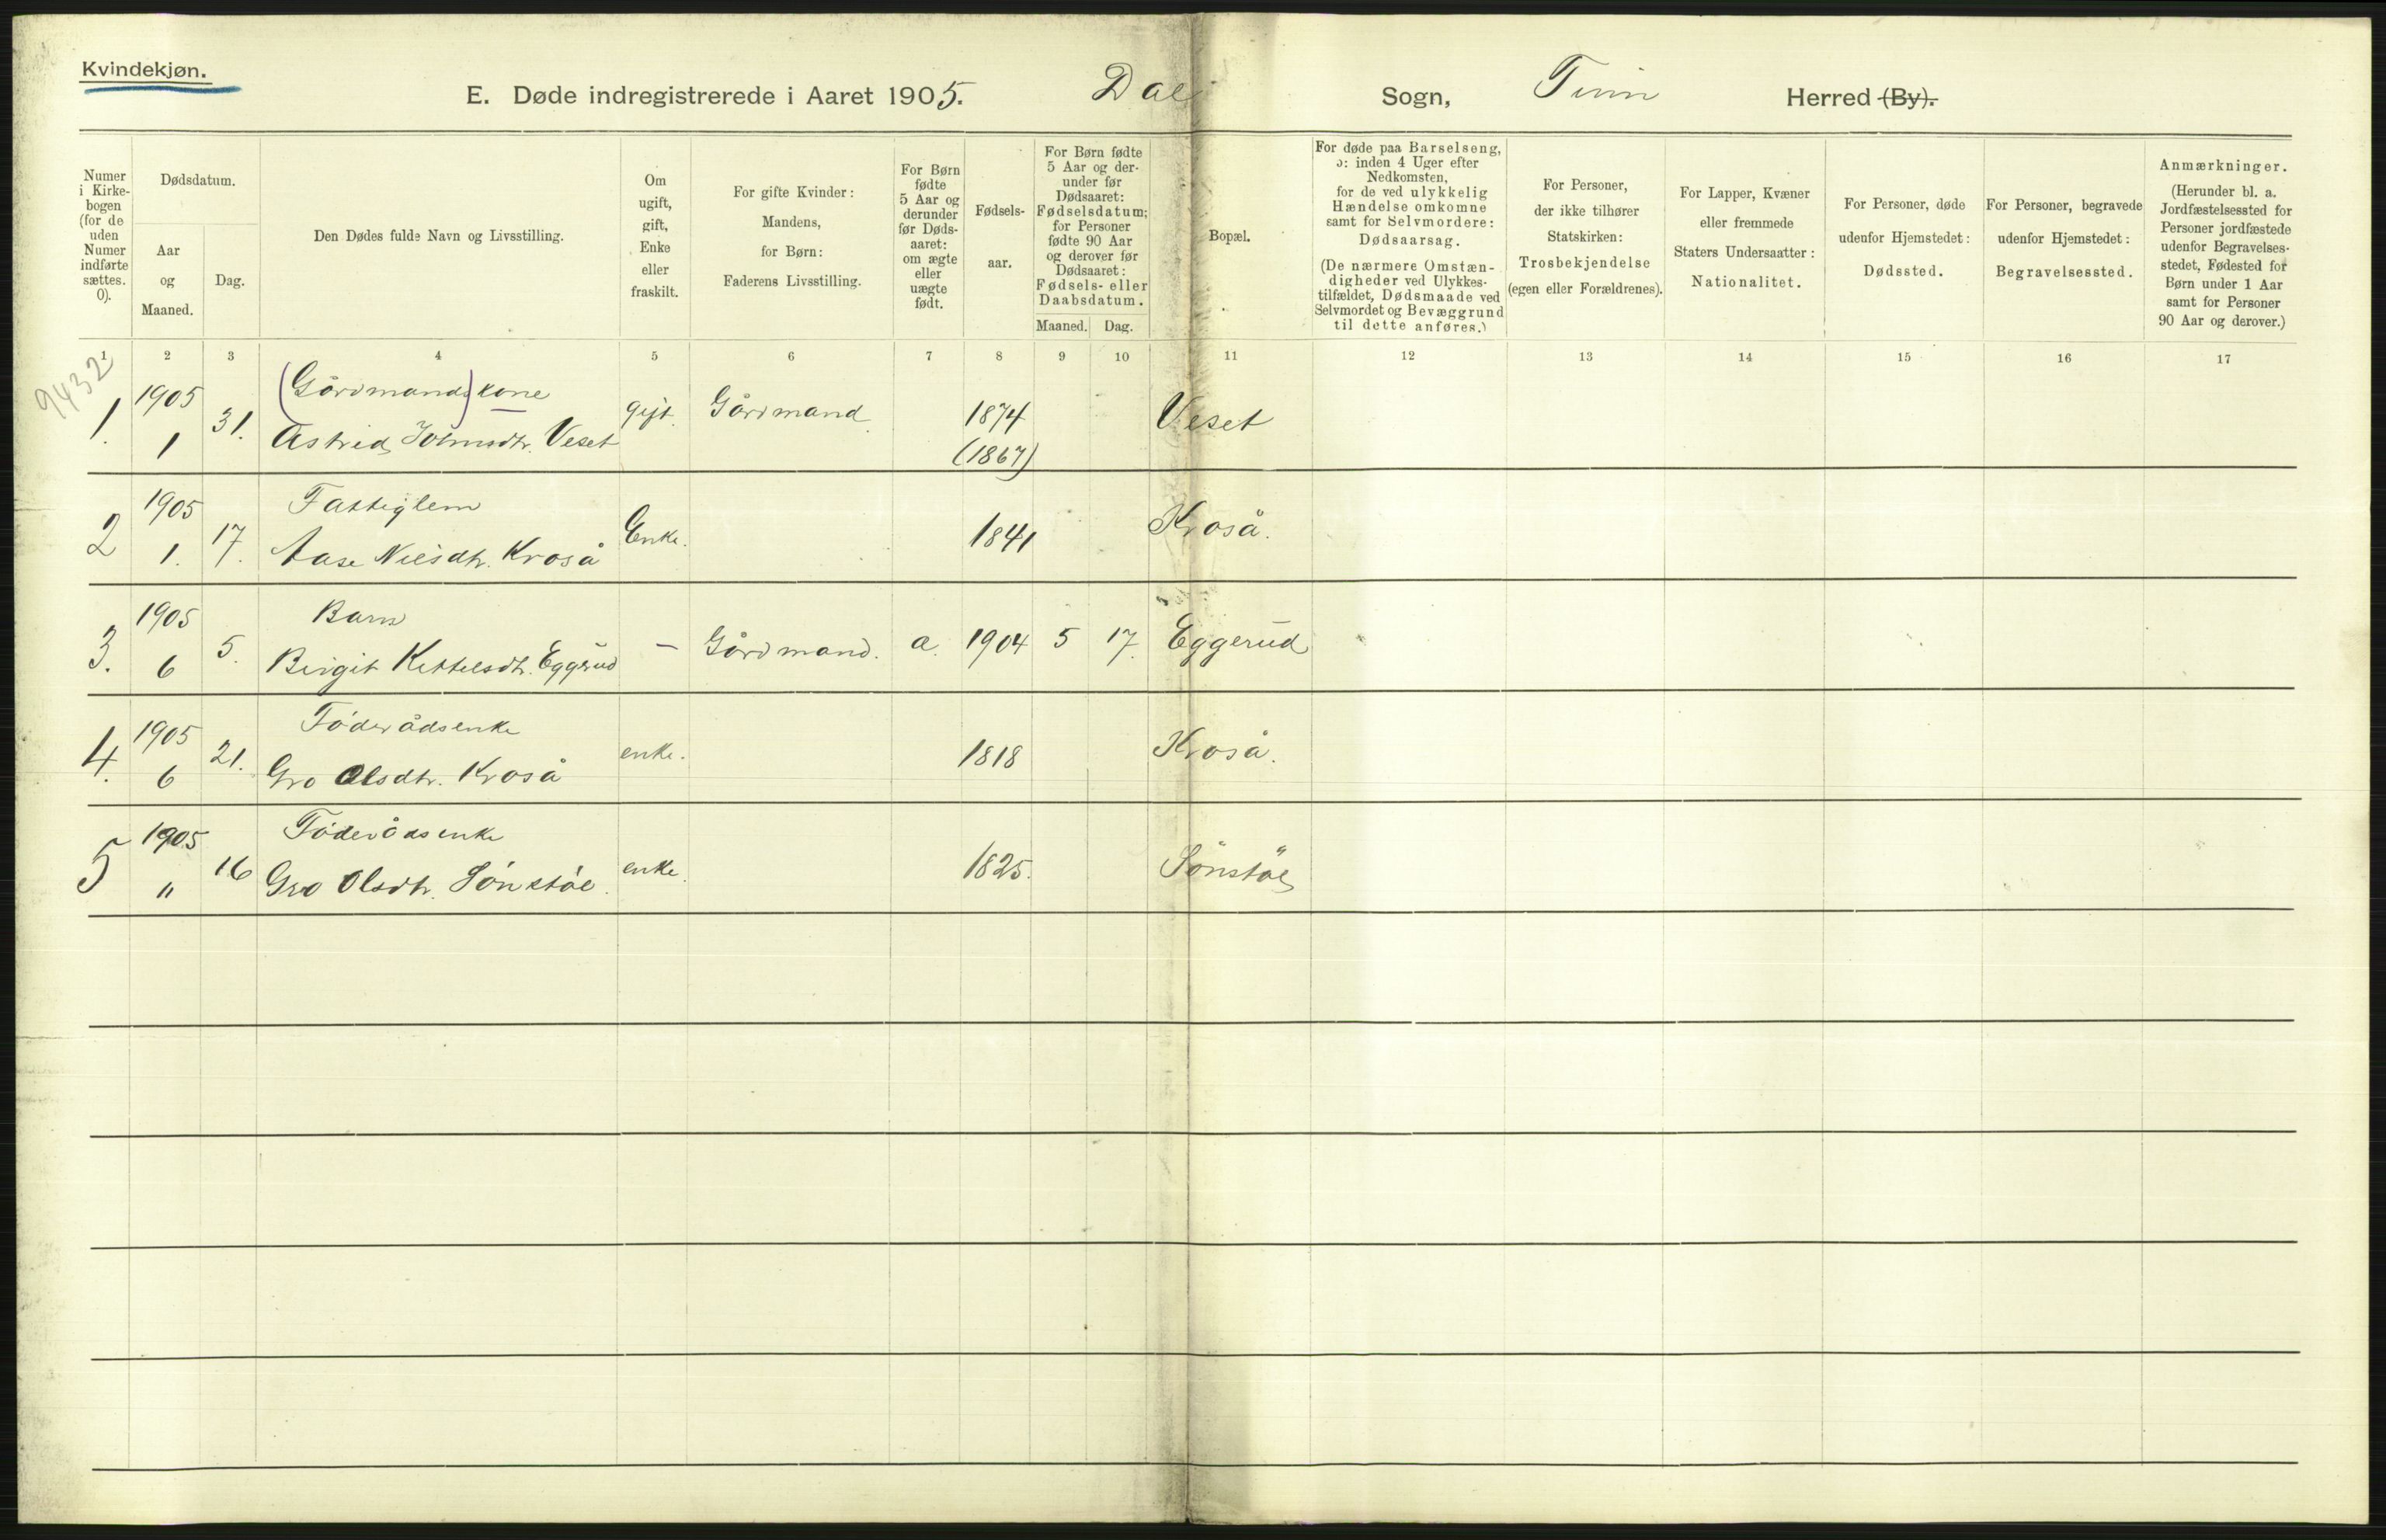 Kvindekjøn.
E. Døde indregistrerede i Aaret 1905. Dal Sogn, Tinn Herred (By).
Numer i Kirkebogen (for de uden Numer indførte sættes. 0).
Dødsdatum.
Aar og Maaned.
Dag.
Den Dødes fulde Navn og Livsstilling.
Om ugift, gift, Enke eller fraskilt.
For gifte Kvinder: Mandens, for Børn: Faderens Livsstilling.
For Børn fødte 5 Aar og derunder før Dødsaaret: om ægte eller uægte født.
Fødselsaar.
For Børn fødte 5 Aar og derunder før Dødsaaret: Fødselsdatum; for Personer fødte 90 Aar og derover før Dødsaaret: Fødsels- eller Daabsdatum.
Maaned. Dag.
Bopæl.
For døde paa Barselseng, ɔ: inden 4 Uger efter Nedkomsten, for de ved ulykkelig Hændelse omkomne samt for Selvmordere: Dødsaarsag. (De nærmere Omstændigheder ved Ulykkestilfældet, Dødsmaade ved Selvmordet og Bevæggrund til dette anføres.)
For Personer, der ikke tilhører Statskirken: Trosbekjendelse (egen eller Forældrenes).
For Lapper, Kvæner eller fremmede Staters Undersaatter: Nationalitet.
For Personer, døde udenfor Hjemstedet: Dødssted.
For Personer, begravede udenfor Hjemstedet: Begravelsessted.
Anmærkninger. (Herunder bl. a. Jordfæstelsessted for Personer jordfæstede udenfor Begravelsesstedet, Fødested for Børn under 1 Aar samt for Personer 90 Aar og derover.)
1 2 3 4 5 6 7 8 9 10 11 12 13 14 15 16 17
9432
1905 (Gårdmands) kone
1. 1 31. Astrid Johnsdtr. Veset gift. Gårdmand. 1874 Veset
(1867)
1905 Fattiglem
2 1. 17. Aase Nilsdtr. Kroså Enke. 1841 Kroså.
1905 Barn
3. 6 5. Birgit Kittelsdtr. Eggerud — Gårdmand. a. 1904 5 17. Eggerud
1905 Föderådsenke
4. 6 21. Gro Olsdtr. Kroså enke. 1818 Kroså.
1905 Föderådsenke
5 " 16 Gro Olsdtr. Sönstöl. enke. 1825. Sönstöl